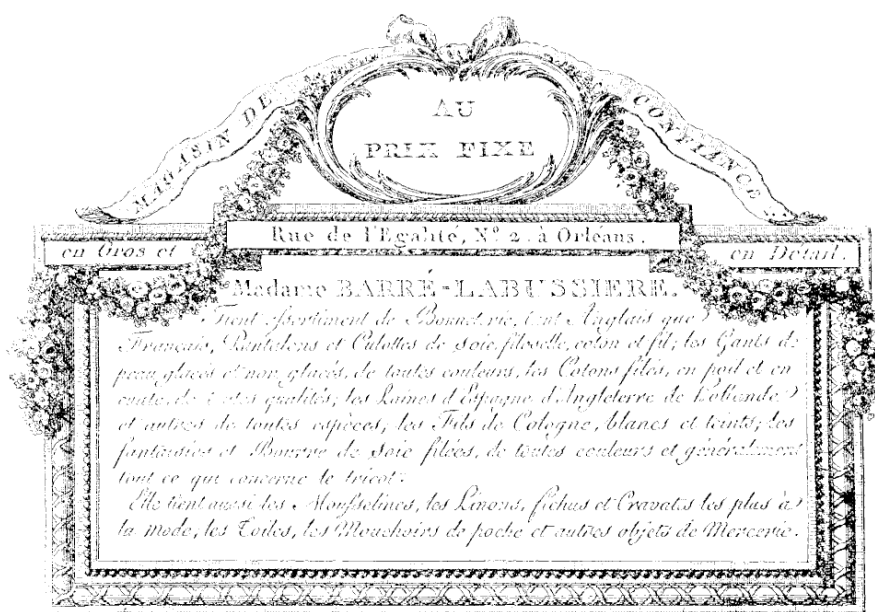 MAGASIN DE CONFIENCE
AU
PRIX FIXE
Rue de l'Egalité, N.º 2. à Orléans.
en Gros et en Détail.
Madame BARRÉ-LABUSSIERE.
Tient Assortiment de Bonneterie, tant Anglais que
Français, Pantalons et Culottes de Soie, filoselle, coton et fil; les Gants de
peau glacés et non glacés, de toutes couleurs, les Cotons filés, en poil et en
de toutes qualités; les Laines d'Espagne d'Angleterre de Hollande
et autres de toutes espèces; les Fils de Cologne, blancs et teints; les
fantaisies et Bourre de Soie filées, de toutes couleurs et généralement
tout ce qui concerne le tricot.
Elle tient aussi les Mousselines, les Linons, fichus et Cravates les plus à
la mode, les Toiles, les Mouchoirs de poche et autres objets de Mercerie.